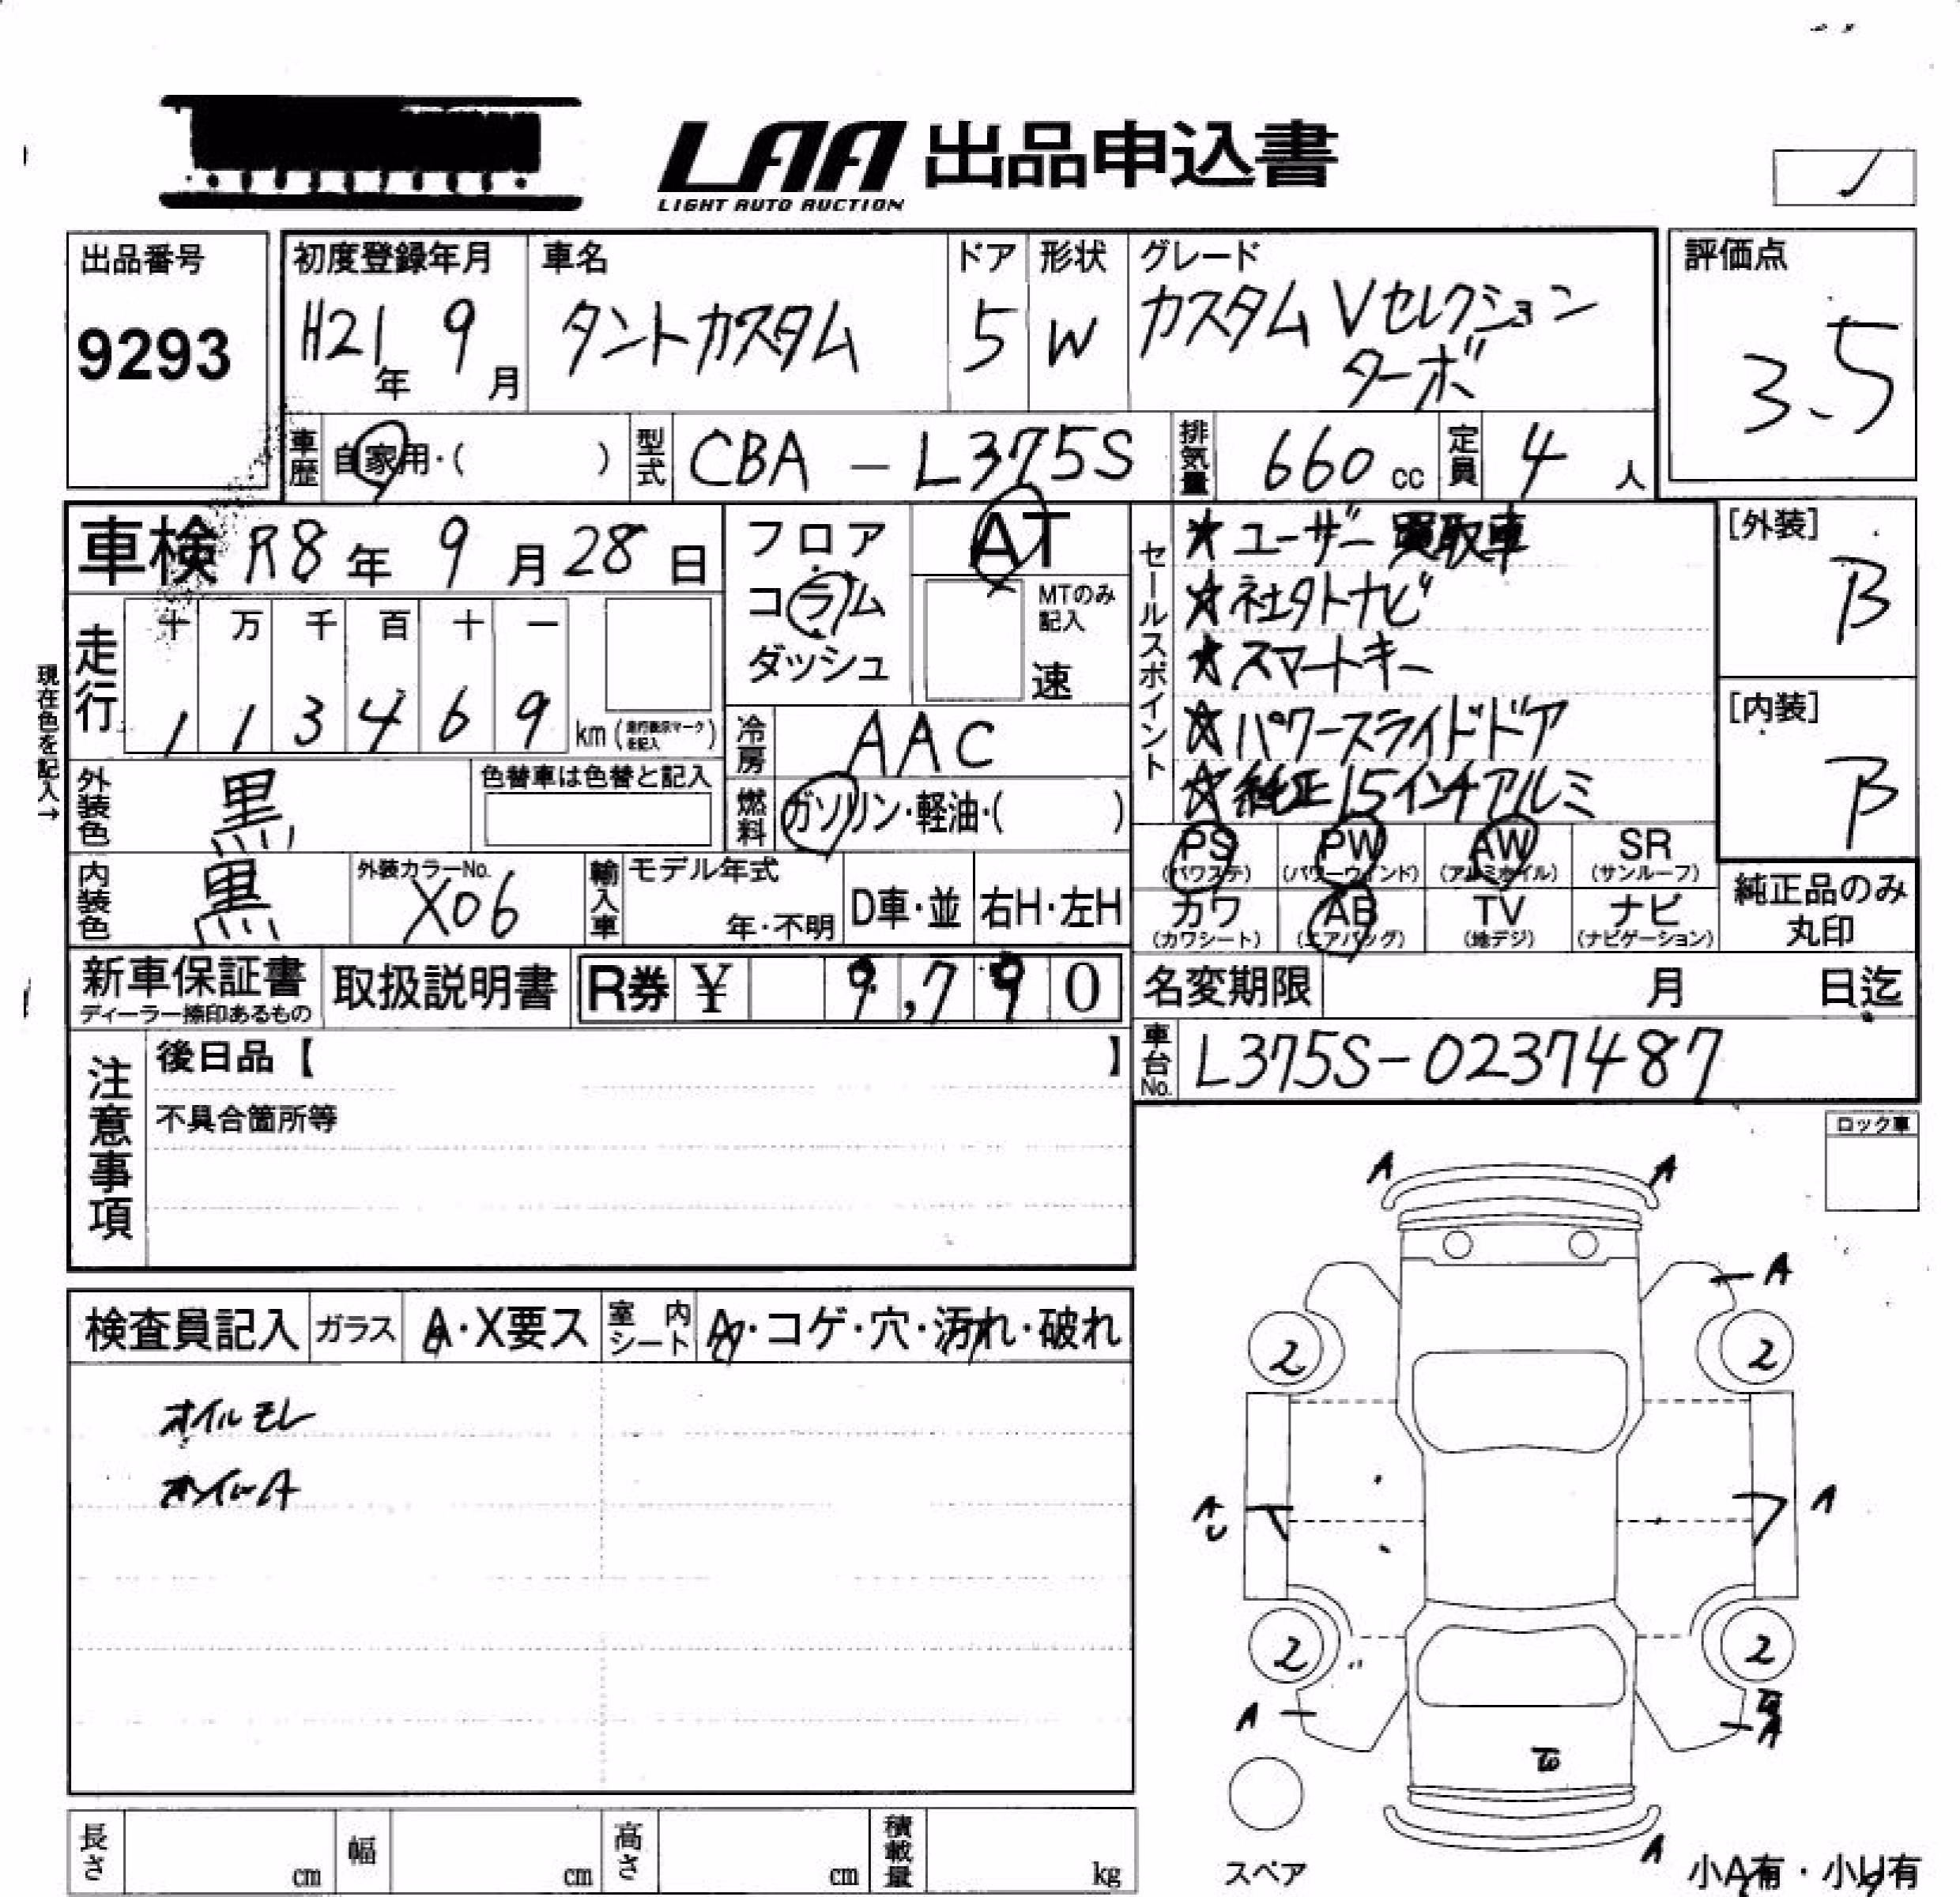 LAA 出品申込書
LIGHT AUTO AUCTION
出品番号
9293
初度登録年月
H21年 9月
車名
タントカスタム
ドア
5
形状
W
グレード
カスタム Vセレクション
ターボ
評価点
3.5
車歴 自家用・( )
型式 CBA-L375S
排気量 660 cc
定員 4 人
車検 R8年 9月 28日
走行
十 万 千 百 十 一
1 1 3 4 6 9 km (走行表示マークを記入)
現在色を記入→
フロア
コラム
ダッシュ
AT
MTのみ記入
速
冷房 AAC
燃料 ガソリン・軽油・( )
外装色 黒
色替車は色替と記入
内装色 黒
外装カラーNo.
X06
輸入車
モデル年式
年・不明
D車・並
右H・左H
セールスポイント
★ユーザー買取車
★社外ナビ
★スマートキー
☆パワースライドドア
☆純正15インチアルミ
[外装]
B
[内装]
B
PS (パワステ)
PW (パワーウインド)
AW (アルミホイル)
SR (サンルーフ)
カワ (カワシート)
AB (エアバッグ)
TV (地デジ)
ナビ (ナビゲーション)
純正品のみ
丸印
新車保証書
ディーラー捺印あるもの
取扱説明書
R券 ¥ 9,790
名変期限 月 日迄
車台No. L375S-0237487
注意事項
後日品【 】
不具合箇所等
ロック車
検査員記入
ガラス A・X要ス
室内シート A・コゲ・穴・汚れ・破れ
オイルモレ
A A
A
2 2
A
A
2 2
A
A
A
スペア
小A有・小U有
長さ cm
幅 cm
高さ cm
積載量 kg